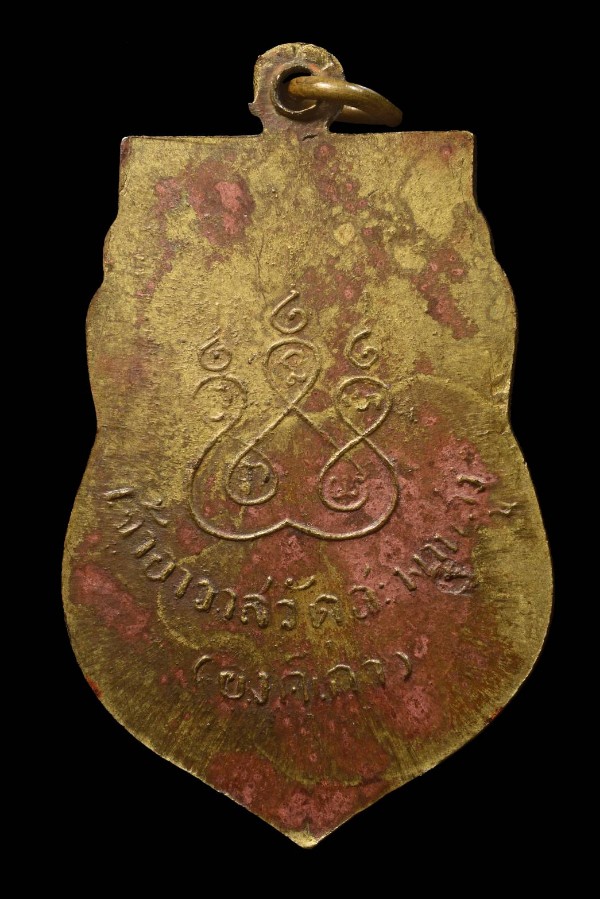 เจ้าอาวาสวัดสะพานสูง
(องค์เก่า)